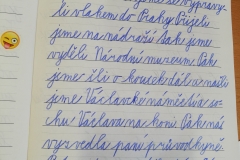 jeme se vypravy-
li vlakem do Prahy. Přijeli
jsme na nádraží. Pak jsme
vyděli Národní muzeum. Pak
jsme šli o kousek dál a našli
jsme Václavské náměstí a so-
chu Václava na koni. Pak nás
vyzvedla paní průvodkyně.